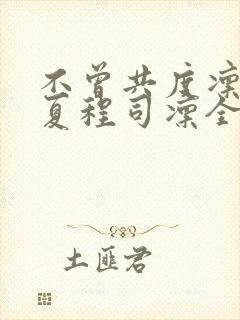 不曾共度凛
夏程司凛全
土匪君